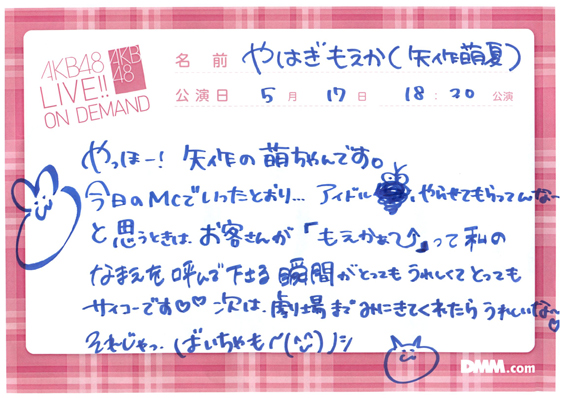 AKB48
LIVE!!
ON DEMAND
AKB
48
名 前 やはぎもえか(矢作萌夏)
公演日 5 月 17 日 18:30 公演
やっほー! 矢作の萌ちゃんです。
今日のMCでいったとおり... アイドル やらせてもらってんな~
と思うときは、お客さんが「もえかぁ〜↑」って私の
なまえを呼んで下さる瞬間がとってもうれしくてとっても
サイコーです♡♡ 次は、劇場まどみにきてくれたらうれしいな~♡
それじゃっ、ばいちゃも~(^^)ノシ
DMM.com